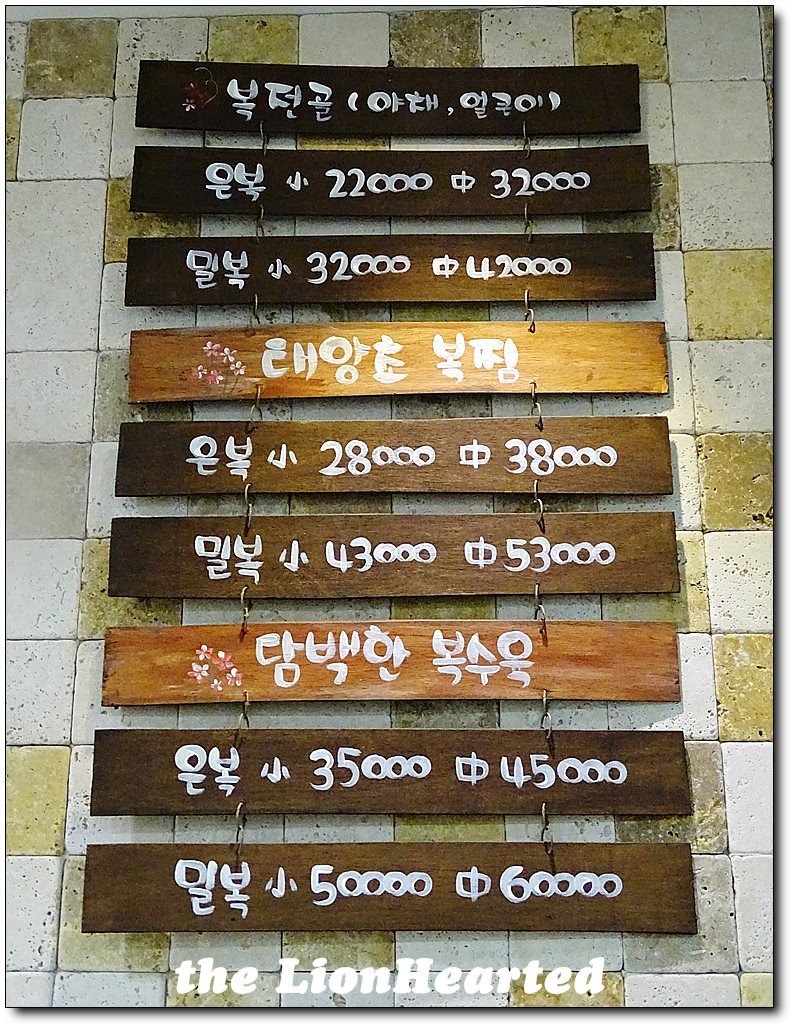 복전골 (야채, 얼큰이)
은복 小 22000 中 32000
밀복 小 32000 中 42000
태양초 복찜
은복 小 28000 中 38000
밀복 小 43000 中 53000
담백한 복수육
은복 小 35000 中 45000
밀복 小 50000 中 60000
the LionHearted